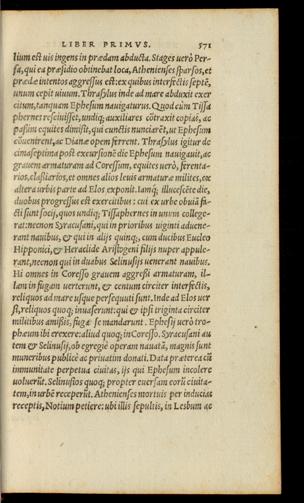 LIBER PRIMVS. 571
lium est uis ingens in prædam abducta. Stages uerò Per-
sa, qui ea præsidio obtinebat loca, Athenienses sparsos, et
prædæ intentos aggressus est: ex quibus interfectis septē,
unum cepit uiuum. Thrasylus inde ad mare abduxit exer
citum, tanquam Ephesum nauigaturus. Quod cùm Tissa
phernes resciuisset, undiq; auxiliares cōtraxit copias, ac
passim equites dimisit, qui cunctis nunciarēt, ut Ephesum
cōuenirent, ac Dianæ opem ferrent. Thrasylus igitur de
cimaseptima post excursionē die Ephesum nauigauit, ac
grauem armaturam ad Coressum, equites uerò, ferenta-
rios, classiarios, et omnes alios leuis armaturæ milites, ex
altera urbis parte ad Elos exponit. Iamq; illucescēte die,
duobus progressus est exercitibus: cui ex urbe obuiā fa-
cti sunt socij, quos undiq; Tissaphernes in unum college-
rat: necnon Syracusani, qui in prioribus uiginti aduene-
rant nauibus, & qui in alijs quinq;, cum ducibus Eucle
Hipponici, & Heraclide Aristogeni filijs nuper appule-
rant, necnon qui in duabus Selinusijs uenerant nauibus.
Hi omnes in Coresso grauem aggressi armaturam, il-
lam in fugam uerterunt, & centum circiter interfectis,
reliquos ad mare usque persequuti sunt. Inde ad Elos uer
si, reliquos quoq; inuaserunt: qui & ipsi triginta circiter
militibus amissis, fugæ se mandarunt. Ephesij uerò tro-
phæum ibi erexere: aliud quoq; in Coresso. Syracusani au
tem & Selinusij, ob egregiè operam nauatā, magnis sunt
muneribus publicè ac priuatim donati. Data præterea cū
immunitate perpetua ciuitas, ijs qui Ephesum incolere
uoluerūt. Selinusios quoq; propter euersam eorū ciuita-
tem, in urbē receperūt. Athenienses mortuis per inducias
receptis, Notium petiere: ubi illis sepultis, in Lesbum ac